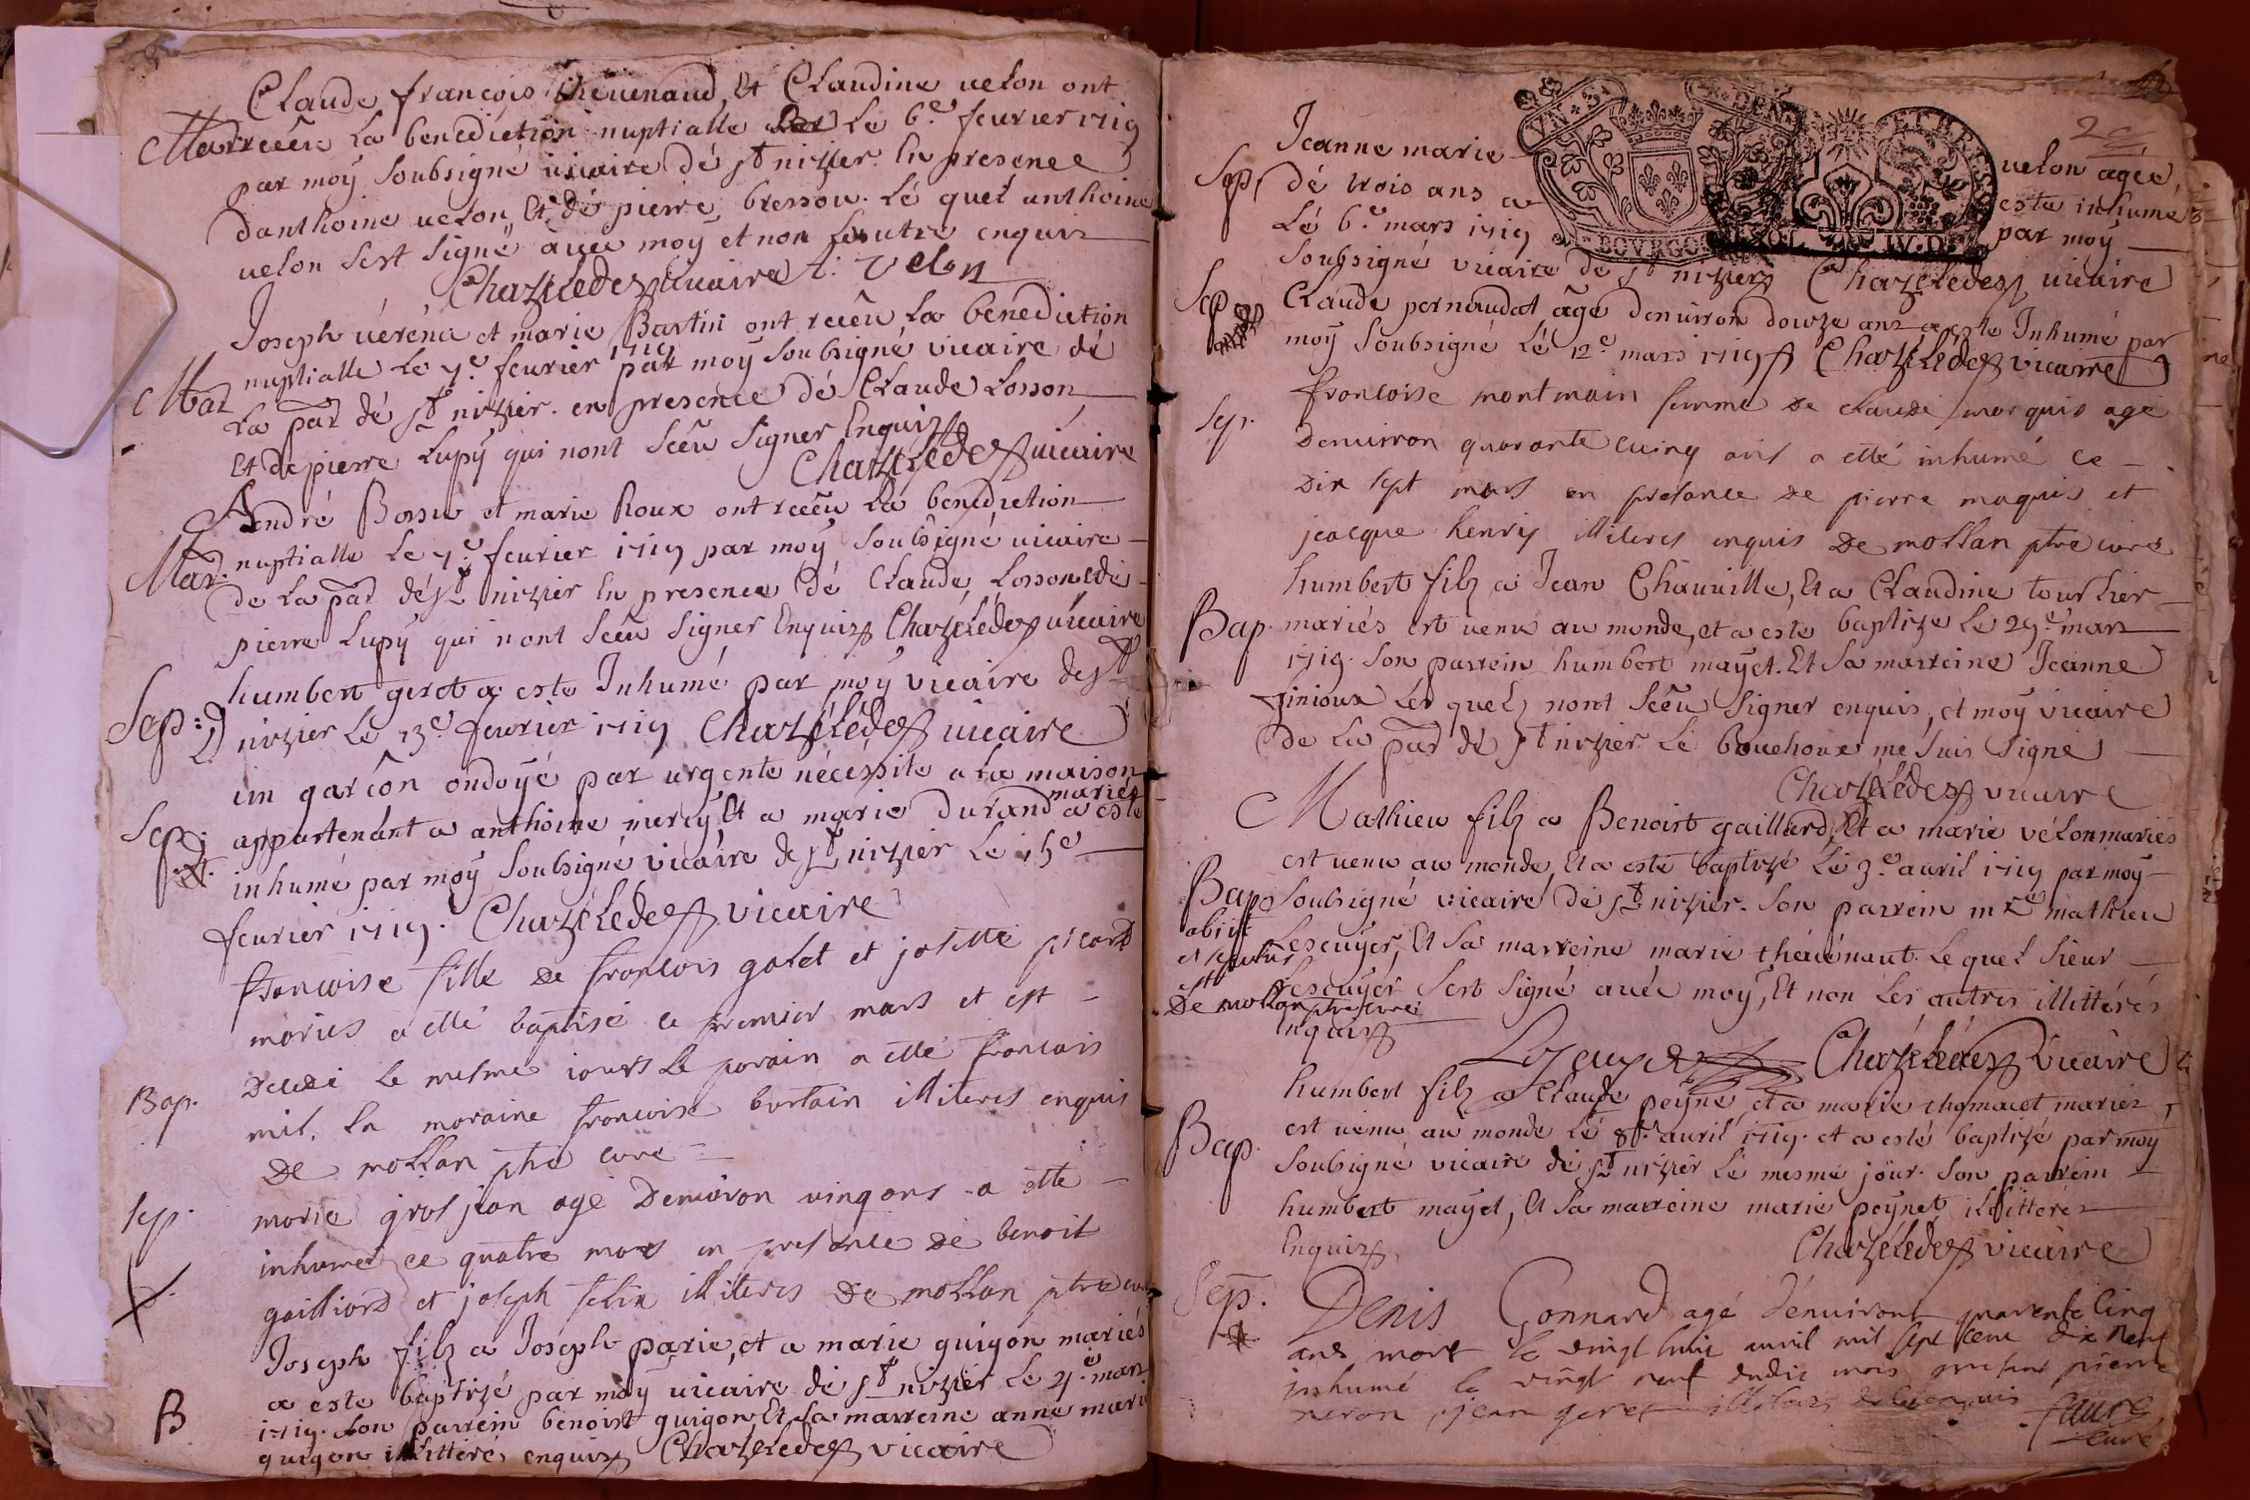 Claude françois theuenaud Et Claudine uelon ont
Mar receu La benediction nuptialle Le 6.e feurier 1719
par moy soubsigné uicaire dé st nizier En presence
danthoine uelon, Et dé pierre bressou. Lé quel anthoine
uelon sest signé àuec moy et non Lautre enquis
Chazeledes uicaire A: velon
Joseph uéréna et marie Bartin ont receu La bénédiction
Mar nuptialle Le 7.e feurier 1719 par moy soubsigné vicaire dé
La par dé st nizier. en presence dé Claude Losson
Et de pierre Lupy qui nont sceu signer Enquis
Chazeledes uicaire
André Bossu et marie Roux ont receu La benediction
Mar. nuptialle Le 7.e feurier 1719 par moy soubsigné uicaire
de La par dé st nizier En presence dé Claude, Losson et de
pierre Lupy qui nont sceu signer Enquis Chazeledes uicaire
humbert geret a esté Inhumé par moy vicaire de st
Sep: nizier Le 13.e feurier 1719 Chazéledes uicaire
un garcon ondoyé par urgente nécessité a La maison
mariés
Sep: appartenant a anthoine mercy Et a marie Durand a esté
inhumé par moy soubsigné vicaire de st nizier Le 15e
feurier 1719. Chazeledes vicaire
francoise fille de francois galet et josette picard
mariés a etté baptisé ce premier mars et est
Bap. décédé le mesme iours le parain a etté francois
mit. la maraine francoise bertain illiteres enquis
De mollan ptre curé
Sep. marie grosjean agé denuiron vingans a etté
inhumé ce quatre mars en presance de benoit
gailliard et joseph felix illiteres de mollan ptre curé
Joseph filz a Joseph parie, et a marie guigon mariés
B a esté baptizé par moy uicaire dé st nizier Le 7.e mars
1719. son parrein benoist guigon Et sa marreine anne marie
guigon illittérés enquis Chazeledes vicaire
29
UN SI DEN ET BRESSE
BOURGO SOL IV.D
Jeanne marie uelon agée
Sep. dé trois ans a esté inhumé
Lé 6.e mars 1719 par moy
soubsigné vicaire de st nizier Chazeledes uicaire
Sep. Claude pernaudat âgé denuiron douze ans a esté Inhumé par
moy soubsigné Lé 12.e mars 1719 Chazéledes vicaire
francoise montmain femme de claude marquis agé
Sep. denuiron quarante cuinq ans a etté inhumé ce
Dix sept mars en presance de pierre maquis et
jacque henry illiteres enquis De mollan ptre curé
humbert filz a Jean Chauuille, Et a Claudine tourtier
Bap. mariés est uenu au monde, et a esté baptize Le 29.e mars
1719. son parrein humbert mayet. Et sa marreine Jeanne
finioux Les quelz nont sceu signer enquis, et moy vicaire
de La par dé st nizier Le bouchoux me suis signé
Chazeledes vicaire
Mathieu filz a Benoist gaillard, Et a marie vélon mariés
est uenu au monde, Et a esté baptizé Lé 3.e auril 1719 par moy
Bap soubsigné vicaire dé st nizier. son parrein mre mathieu
obiit Lescuyer, Et sa marreine marie théuenaut. Le quel sieur
et sepultus
est Lescuyer sest signé auéc moy, Et non Les autres illittérés
De mollan ptre curé
Enquis
Lescuyer Chazeledes Vicaire
humbert filz a Claude peyne, et a marie thomacet mariés
Bap. est uenu au monde Lé 8.e auril 1719. et a esté baptizé par moy
soubsigné vicaire dé st nizier Lé mesme jour. son parrein
humbert mayet, Et sa marreine marie peynet illittérés
Enquis Chazeledes vicaire
Sep. Denis Gonnard agé d'enuiront quarente cinq
ans mort le vingt huit auril mil sept cent dix neuf
inhumé le vingt neuf dudit mois present pierre
neron, jean geret illiteres enquis
faure
curé